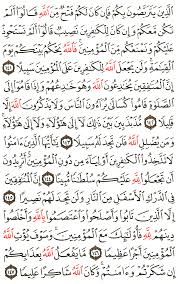 ٱلَّذِينَ يَتَرَبَّصُونَ بِكُمْ فَإِن كَانَ لَكُمْ فَتْحٌ مِّنَ ٱللَّهِ قَالُوٓا۟ أَلَمْ
نَكُن مَّعَكُمْ وَإِن كَانَ لِلْكَٰفِرِينَ نَصِيبٌ قَالُوٓا۟ أَلَمْ نَسْتَحْوِذْ
عَلَيْكُمْ وَنَمْنَعْكُم مِّنَ ٱلْمُؤْمِنِينَ فَٱللَّهُ يَحْكُمُ بَيْنَكُمْ يَوْمَ
ٱلْقِيَٰمَةِ وَلَن يَجْعَلَ ٱللَّهُ لِلْكَٰفِرِينَ عَلَى ٱلْمُؤْمِنِينَ سَبِيلًا ١٤١
إِنَّ ٱلْمُنَٰفِقِينَ يُخَٰدِعُونَ ٱللَّهَ وَهُوَ خَٰدِعُهُمْ وَإِذَا قَامُوٓا۟ إِلَى
ٱلصَّلَوٰةِ قَامُوا۟ كُسَالَىٰ يُرَآءُونَ ٱلنَّاسَ وَلَا يَذْكُرُونَ ٱللَّهَ إِلَّا
قَلِيلًا ١٤٢ مُّذَبْذَبِينَ بَيْنَ ذَٰلِكَ لَآ إِلَىٰ هَٰٓؤُلَآءِ وَلَآ إِلَىٰ هَٰٓؤُلَآءِ
وَمَن يُضْلِلِ ٱللَّهُ فَلَن تَجِدَ لَهُۥ سَبِيلًا ١٤٣ يَٰٓأَيُّهَا ٱلَّذِينَ ءَامَنُوا۟
لَا تَتَّخِذُوا۟ ٱلْكَٰفِرِينَ أَوْلِيَآءَ مِن دُونِ ٱلْمُؤْمِنِينَ أَتُرِيدُونَ
أَن تَجْعَلُوا۟ لِلَّهِ عَلَيْكُمْ سُلْطَٰنًا مُّبِينًا ١٤٤ إِنَّ ٱلْمُنَٰفِقِينَ
فِى ٱلدَّرْكِ ٱلْأَسْفَلِ مِنَ ٱلنَّارِ وَلَن تَجِدَ لَهُمْ نَصِيرًا ١٤٥
إِلَّا ٱلَّذِينَ تَابُوا۟ وَأَصْلَحُوا۟ وَٱعْتَصَمُوا۟ بِٱللَّهِ وَأَخْلَصُوا۟
دِينَهُمْ لِلَّهِ فَأُو۟لَٰٓئِكَ مَعَ ٱلْمُؤْمِنِينَ وَسَوْفَ يُؤْتِ ٱللَّهُ
ٱلْمُؤْمِنِينَ أَجْرًا عَظِيمًا ١٤٦ مَّا يَفْعَلُ ٱللَّهُ بِعَذَابِكُمْ
إِن شَكَرْتُمْ وَءَامَنتُمْ وَكَانَ ٱللَّهُ شَاكِرًا عَلِيمًا ١٤٧